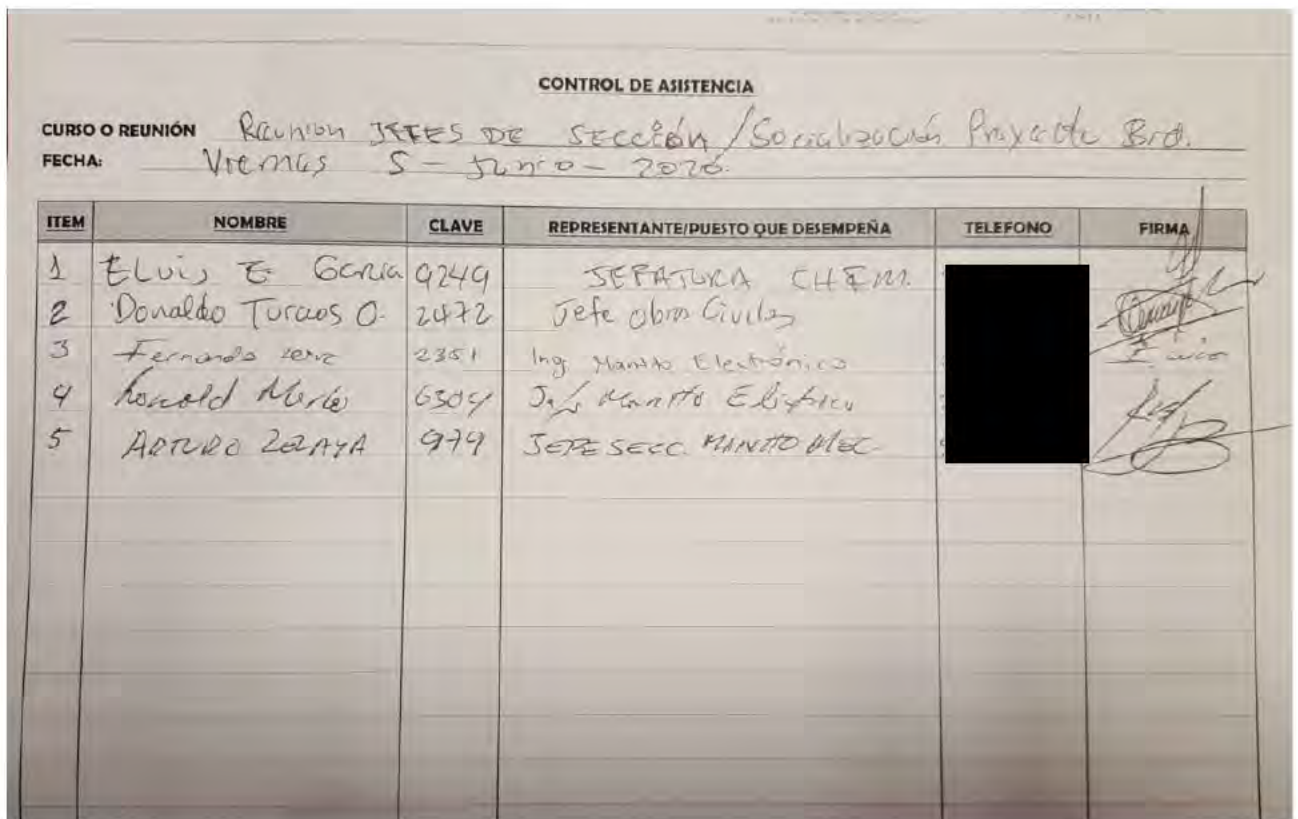 CONTROL DE ASISTENCIA
CURSO O REUNIÓN Reunion JEFES DE Sección / Socialización Proyecto
FECHA: Viernes 5 - Junio - 2020.
ITEM NOMBRE CLAVE REPRESENTANTE/PUESTO QUE DESEMPEÑA TELEFONO FIRMA
1 ELvis E García 9249 JEFATURA CHFM.
2 Donaldo Turcios O. 2472 Jefe Obras Civiles
3 Fernando 2351 Ing Mantto Electrónico
4 6304 Jefe Mantto
5 ARTURO ZELAYA 979 JEFE SECC. MANTTO MEC.